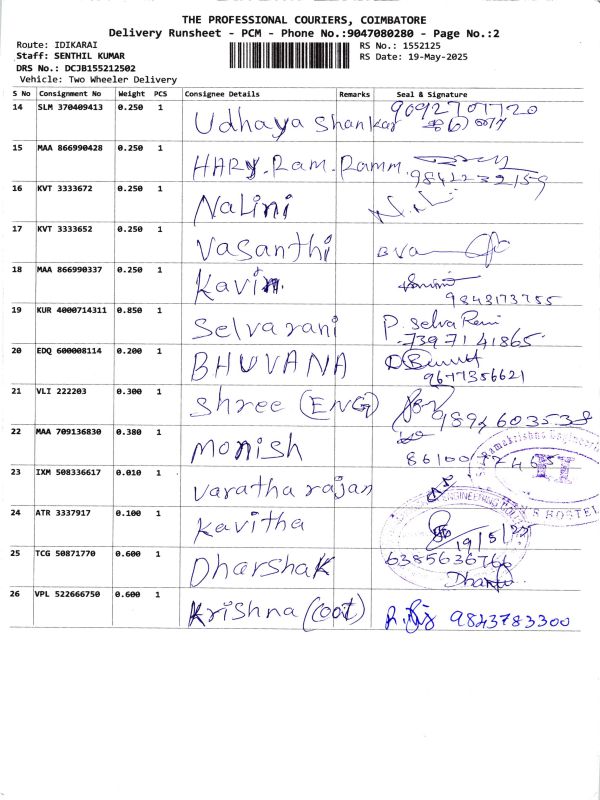 THE PROFESSIONAL COURIERS, COIMBATORE
Delivery Runsheet - PCM - Phone No.:9047080280 - Page No.:2
Route: IDIKARAI
RS No.: 1552125
Staff: SENTHIL KUMAR
RS Date: 19-May-2025
DRS No.: DCJB155212502
Vehicle: Two Wheeler Delivery
S No Consignment No Weight PCS Consignee Details Remarks Seal & Signature
14 SLM 370409413 0.250 1 Udhaya Shankar 9092701720
15 MAA 866990428 0.250 1 HARY.Ram.Ramm. 9842232159
16 KVT 3333672 0.250 1 Nalini
17 KVT 3333652 0.250 1 Vasanthi
18 MAA 866990337 0.250 1 Kavin. 9843173755
19 KUR 4000714311 0.850 1 Selvarani P. Selva Rani
7397141865
20 EDQ 600008114 0.200 1 BHUVANA 9677356621
21 VLI 222203 0.300 1 Shree (ENG) 9894603538
22 MAA 709136830 0.380 1 Monish
23 IXM 508336617 0.010 1 Varatharajan
24 ATR 3337917 0.100 1 Kavitha 19/5/25
25 TCG 50871770 0.600 1 Dharshak 6385636766
26 VPL 522666750 0.600 1 Krishna (coot) 9843783300